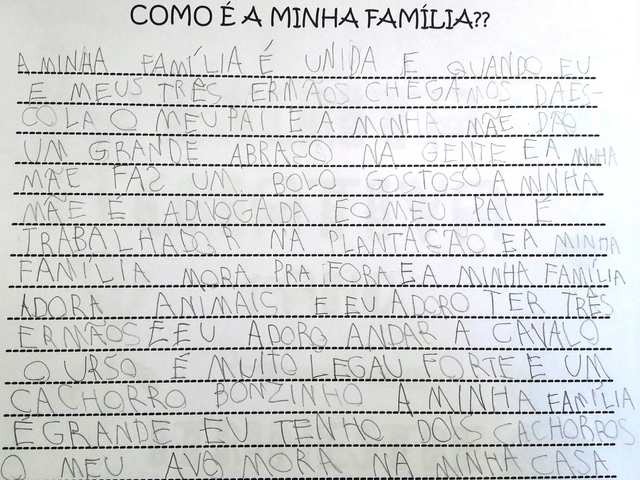 COMO É A MINHA FAMÍLIA??
A MINHA FAMÍLIA É UNIDA E QUANDO EU
E MEUS TRÊS ERMÃOS CHEGAMOS DAES-
COLA O MEU PAI E A MINHA MÃE DÃO
UM GRANDE ABRAÇO NA GENTE E A MINHA
MÃE FAZ UM BOLO GOSTOSO A MINHA
MÃE É ADIVOGADA E O MEU PAI É
TRABALHADOR NA PLANTAÇÃO E A MINHA
FAMÍLIA MORA PRA FORA E A MINHA FAMÍLIA
ADORA ANIMAIS E EU ADORO TER TRÊS
ERMÃOS E EU ADORO ANDAR A CAVALO
O URSO É MUITO LEGAU FORTE E UM
CACHORRO BONZINHO A MINHA FAMÍLIA
É GRANDE EU TENHO DOIS CACHORROS
O MEU AVÔ MORA NA MINHA CASA